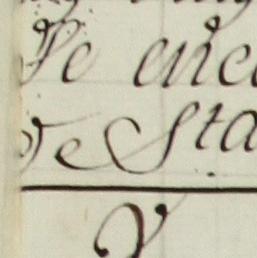 Se enc
de Sta
Y